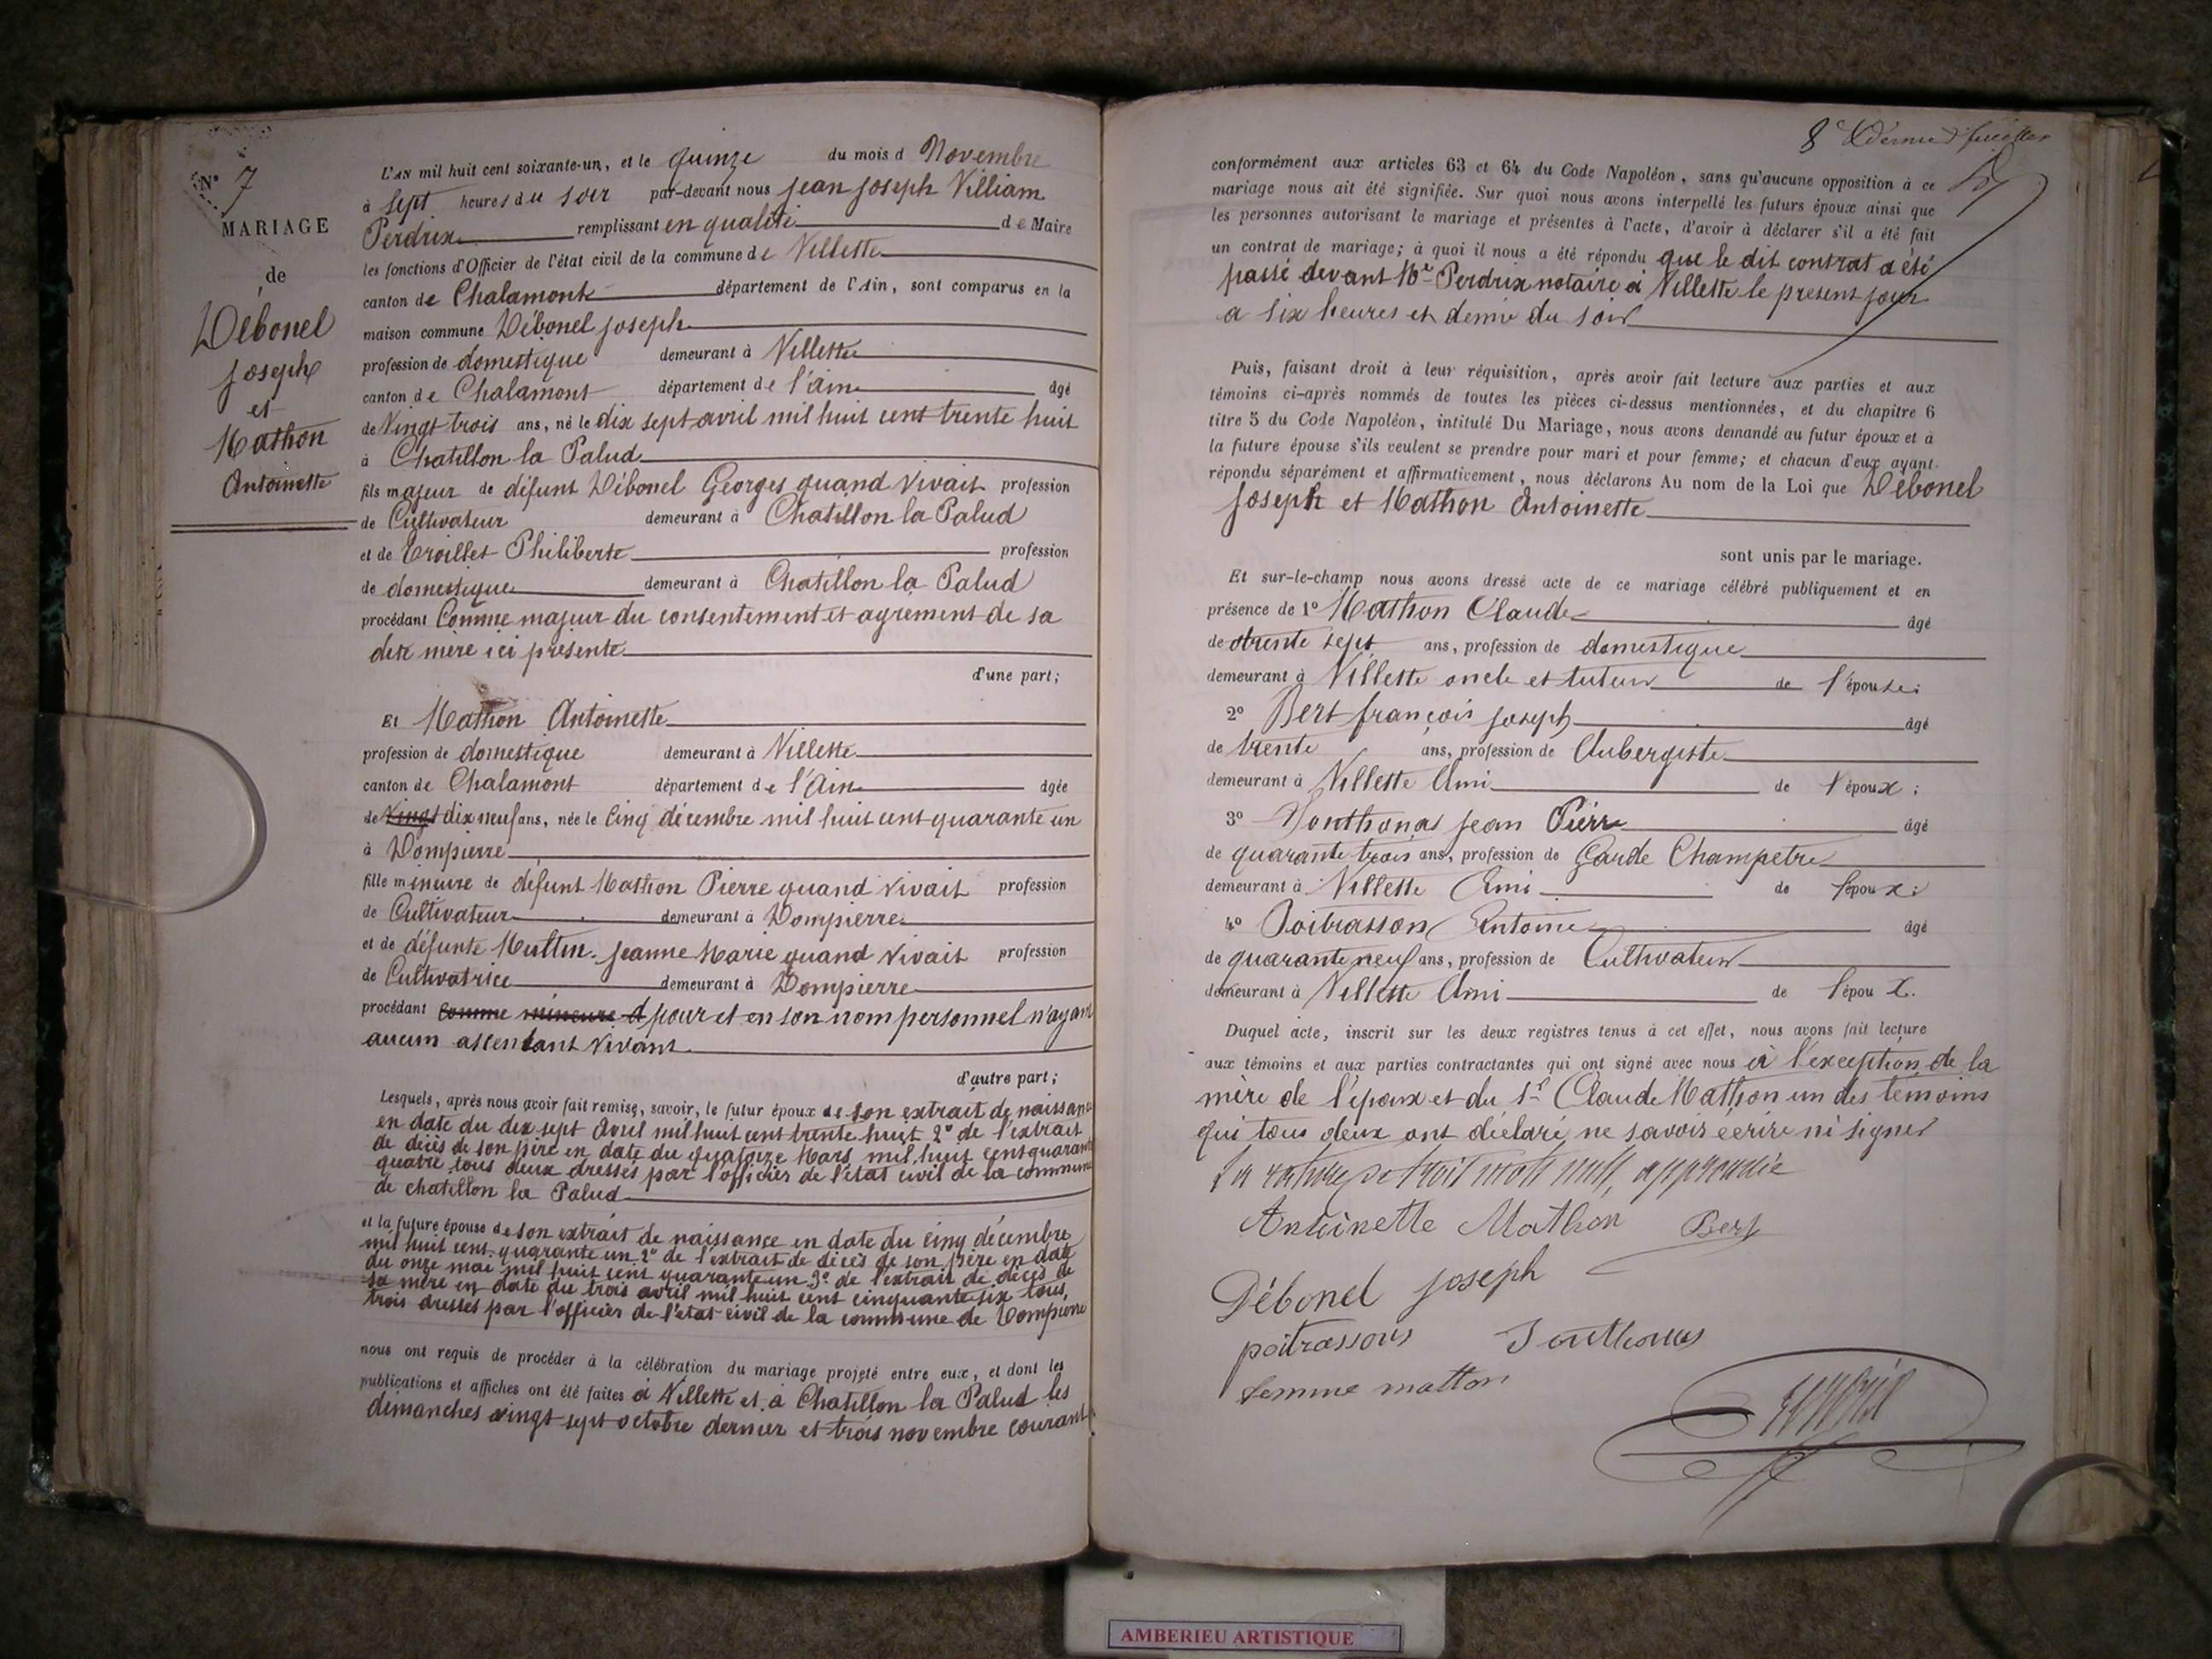 N° 7
MARIAGE
de
Débonel
Joseph
et
Mathon
Antoinette
L'AN mil huit cent soixante-un, et le quinze du mois d Novembre
à sept heures du soir par-devant nous Jean Joseph Villiam
Perdrix remplissant en qualité de Maire
les fonctions d'Officier de l'état civil de la commune de Villette
canton de Chalamont département de l'Ain, sont comparus en la
maison commune Débonel Joseph
profession de domestique demeurant à Villette
canton de Chalamont département de l'Ain âgé
de Vingt trois ans, né le dix sept avril mil huit cent trente huit
à Chatillon la Palud
fils majeur de défunt Débonel Georges quand vivait profession
de Cultivateur demeurant à Chatillon la Palud
et de Troillet Philiberte profession
de domestique demeurant à Chatillon la Palud
procédant Comme majeur du consentement et agrément de sa
dite mère ici présente
d'une part;
Et Mathon Antoinette
profession de domestique demeurant à Villette
canton de Chalamont département de l'Ain âgée
de Vingt dix neuf ans, née le Cinq décembre mil huit cent quarante un
à Dompierre
fille mineure de défunt Mathon Pierre quand vivait profession
de Cultivateur demeurant à Dompierre
et de défunte Muttin Jeanne Marie quand vivait profession
de Cultivatrice demeurant à Dompierre
procédant comme mineure d pour et en son nom personnel n'ayant
aucun ascendant vivant
d'autre part;
Lesquels, après nous avoir fait remise, savoir, le futur époux de son extrait de naissance
en date du dix sept Avril mil huit cent trente huit 2° de l'extrait
de décès de son père en date du quatorze Mars mil huit cent quarante
quatre tous deux dressés par l'officier de l'état civil de la commune
de chatillon la Palud
et la future épouse de son extrait de naissance en date du cinq décembre
mil huit cent quarante un 2° de l'extrait de décès de son père en date
du onze mai mil huit cent quarante un 3° de l'extrait de décès de
sa mère en date du trois avril mil huit cent cinquante six tous
trois dressés par l'officier de l'état civil de la commune de Dompierre
nous ont requis de procéder à la célébration du mariage projeté entre eux, et dont les
publications et affiches ont été faites à Villette et à Chatillon la Palud les
dimanches vingt sept octobre dernier et trois novembre courant
8e & dernier feuillet
conformément aux articles 63 et 64 du Code Napoléon, sans qu'aucune opposition à ce
mariage nous ait été signifiée. Sur quoi nous avons interpellé les futurs époux ainsi que
les personnes autorisant le mariage et présentes à l'acte, d'avoir à déclarer s'il a été fait
un contrat de mariage; à quoi il nous a été répondu que le dit contrat a été
passé devant Me Perdrix notaire à Villette le present jour
a six heures et demie du soir
Puis, faisant droit à leur réquisition, après avoir fait lecture aux parties et aux
témoins ci-après nommés de toutes les pièces ci-dessus mentionnées, et du chapitre 6
titre 5 du Code Napoléon, intitulé Du Mariage, nous avons demandé au futur époux et à
la future épouse s'ils veulent se prendre pour mari et pour femme; et chacun d'eux ayant
répondu séparément et affirmativement, nous déclarons Au nom de la Loi que Débonel
Joseph et Mathon Antoinette
sont unis par le mariage.
Et sur-le-champ nous avons dressé acte de ce mariage célébré publiquement et en
présence de 1° Mathon Claude âgé
de trente sept ans, profession de domestique
demeurant à Villette oncle et tuteur de l'épouse;
2° Bert françois Joseph âgé
de trente ans, profession de Aubergiste
demeurant à Villette Ami de l'époux;
3° Jonthonas Jean Pierre âgé
de quarante trois ans, profession de Garde Champetre
demeurant à Villette Ami de l'époux;
4° Poitrasson Antoine âgé
de quarante neuf ans, profession de Cultivateur
demeurant à Villette Ami de l'époux.
Duquel acte, inscrit sur les deux registres tenus à cet effet, nous avons fait lecture
aux témoins et aux parties contractantes qui ont signé avec nous à l'exception de la
mère de l'époux et du Sr Claude Mathon un des témoins
qui tous deux ont déclaré ne savoir écrire ni signer
La rature de trois mots nuls approuvée
Antoinette Mathon Bert
Débonel Joseph
poitrassons Jonthonas
femme matton
AMBERIEU ARTISTIQUE